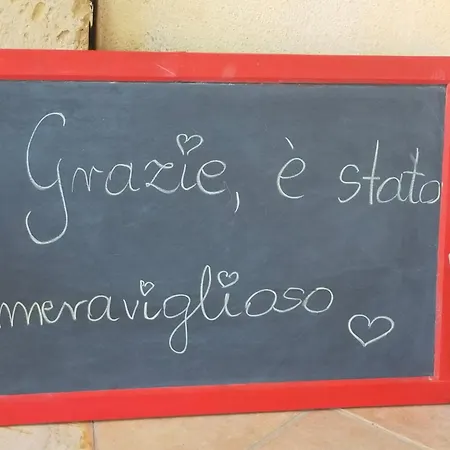 Grazie, è stato
meraviglioso